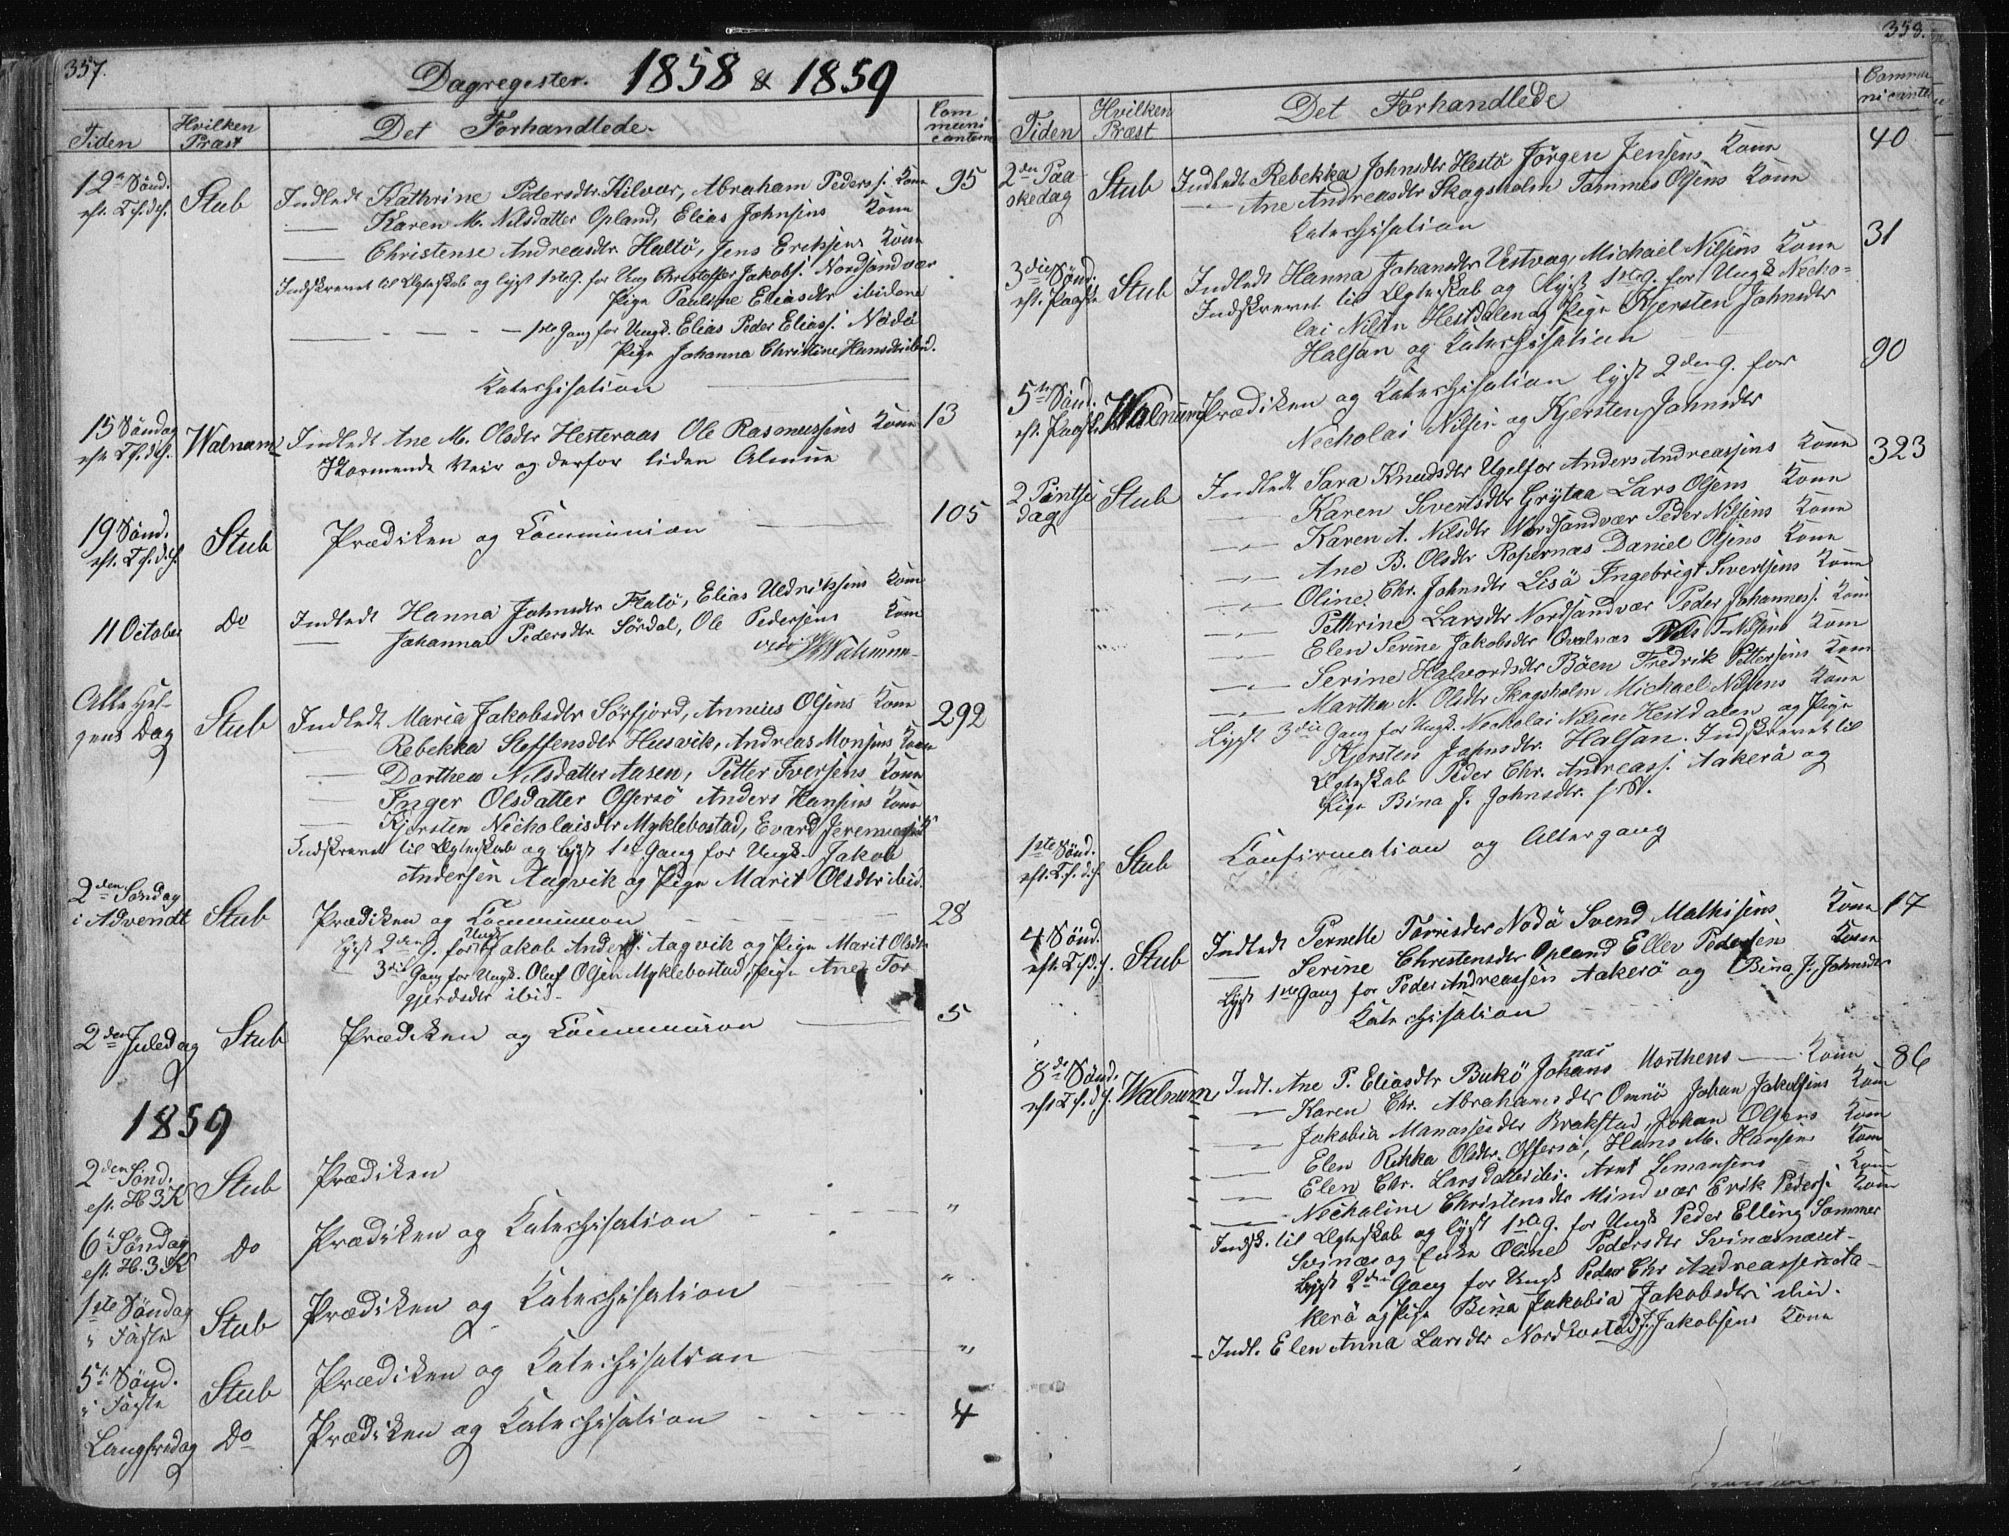 357.
Dagregister. 1858 & 1859
Tiden
Hvilken Præst
Det Forhandlede.
Com muni canterne
12te Sønd. eft. Tr.
Stub
Indledt Kathrine Pedersdtr Kilvær, Abraham Peders s. Kone
95
— Karen M. Nilsdatter Opland, Elias Johnsens Kone
— Christense Andreasdtr Haltø, Jens Eriksens Kone
Indskrevet til Ægteskab og lyst 1ste G. for Ung Christoffer Jakobs. Nordsandvær
Pige Pauline Eliasdtr ibidem
— 1ste Gang for Ungk. Elias Peder Elias s. Nødø
Pige Johanna Christine Hansdtr ibid.
Katechisation
15 Søndag eft. Tr.
Walnum
Indledt Ane M. Olsdtr Hesteraas Ole Rasmussens Kone
13
Stormende Veir og derfor liden Almue
19 Sønd. eft. Tr.
Stub
Prædiken og Communion
105
11 October
Do
Indledt Hanna Johnsdtr Flatø, Elias Uldriksens Kone
— Johanna Pedersdtr Sørdal, Ole Pedersens Kone
vidi Walnum
Alle Helgens Dag
Stub
Indledt Maria Jakobsdtr Sørfjord, Annæus Olsens Kone
292
— Rebekka Steffensdtr Husvik, Andreas Monsens Kone
— Dorthea Nilsdatter Aasen, Petter Iversens Kone
— Inger Olsdatter Offersø Anders Hansens Kone
— Kjersten Nicholaisdtr Myklebostad, Evard Jeremiasens
Indskrevet til Ægteskab og lyst 1ste Gang for Ungk. Jakob
Andersen Aagvik og Pige Marit Olsdtr ibid.
2den Søndag i Advendt
Stub
Prædiken og Communion
28
Lyst 2den G. for Ungk Jakob Anders. Aagvik og Pige Marit Olsdtr
— 3die Gang for Ungk. Oluf Olsen Myklebostad, Pige Ane Tor
gjerdsdtr ibid.
2den Juledag
Stub
Prædiken og Communion
5
1859
2den Sønd. eft. H3K
Stub
Prædiken
6te Søndag eft. H.3K
Do
Prædiken og Katechisation
"
1ste Søndag i Faste
Stub
Prædiken og Katechisation
"
5te Sønd. i Faste
Stub
Prædiken og Katechisation
"
Langfredag
Do
Prædiken og Katechisation
4
359.
Tiden
Hvilken Præst
Det Forhandlede
Commu nicante
2den Paaskedag
Stub
Indledt Rebekka Johnsdtr Hestø Jørgen Jensens Kone
40
— Ane Andreasdtr Skogsholm Tommes Olsens Kone
Katechisation
3die Sønd. eft. Paaske
Stub
Indledt Hanna Johansdtr Vestvag, Michael Nilsens Kone
31
Indskrevet til Ægteskab og lyst 1ste G. for Ungk Necho-
lai Nilsen Hestdalen og Pige Kjersten Johnsdtr
Halsan og Katechisation
5te Sønd. eft. Paaske
Walnum
Prædiken og Katechisation lyst 2den G. for
90
Necholai Nilsen og Kjersten Johnsdtr
2 Pintsedag
Stub
Indledt Sara Knudsdtr Ugelfor Anders Andreassens Kone
323
— Karen Sivertsdtr Grytaa Lars Olsens Kone
— Karen A. Nilsdtr Nordsandvær Peder Nilsens Kone
— Ane B. Olsdtr Ropernæs Daniel Olsens Kone
— Oline Chr. Johnsdtr Lisø Ingebrigt Sivertsens Kone
— Pethrine Larsdtr Nordsandvær Peder Johannes s. Kone
— Elen Serine Jakobsdtr Qvalnæs Nils T. Nilsens Kone
— Serine Halvordsdtr Bøen Fredrik Pettersens Kone
— Martha N. Olsdtr Skogsholm Michael Nilsens Kone
Lyst 3die Gang for Ungk. Necholai Nilsen Hestdalen og Pige
Kjersten Johnsdtr. Halsan. Indskrevet til
Ægteskab Peder Chr. Andreass. Aakerø og
Pige Bina J. Johnsdtr.
1ste Sønd. eft. Tr.
Stub
Confirmation og Altergang
4 Sønd. eft. Tr.
Stub
Indledt Pernelle Torrisdtr Nodø Svend Mathisens Kone
17
— Serine Christensdtr Opland Eller Pedersen Kone
Lyst 1ste Gang for Peder Andreassen Aakerø og Bina J. Johnsdtr
Katechisation
8de Sønd. eft Tr.
Walnum
Indl. Ane P. Eliasdtr Bukø Johans nas Morthens — Kone
86
— Karen Chr. Abrahamsdtr Omnø Johan Jakobsens Kone
— Jakobia Manassesdtr Brakstad, Johan Olsens Kone
— Elen Rikka Olsdtr. Offersø, Hans M. Hansens Kone
— Elen Chr. Larsdatter ibi. Arnt Simansens Kone
— Necholine Christensdtr Mindvær Erik Peders s. Kone
Indsk. til Ægteskab og lyst 1ste G. for Ungk Peder Elling Sommer
Svinæs og Enke Oline Pedersdtr Svinæsnæset
Lyst 2den Gang for Ungk Peder Chr Andreassen Aa-
kerø og Pige Bina Jakobia Jakobsdtr ibid.
Indl. Elen Anna Larsdtr Nordbostad J. Jakobsens Kone